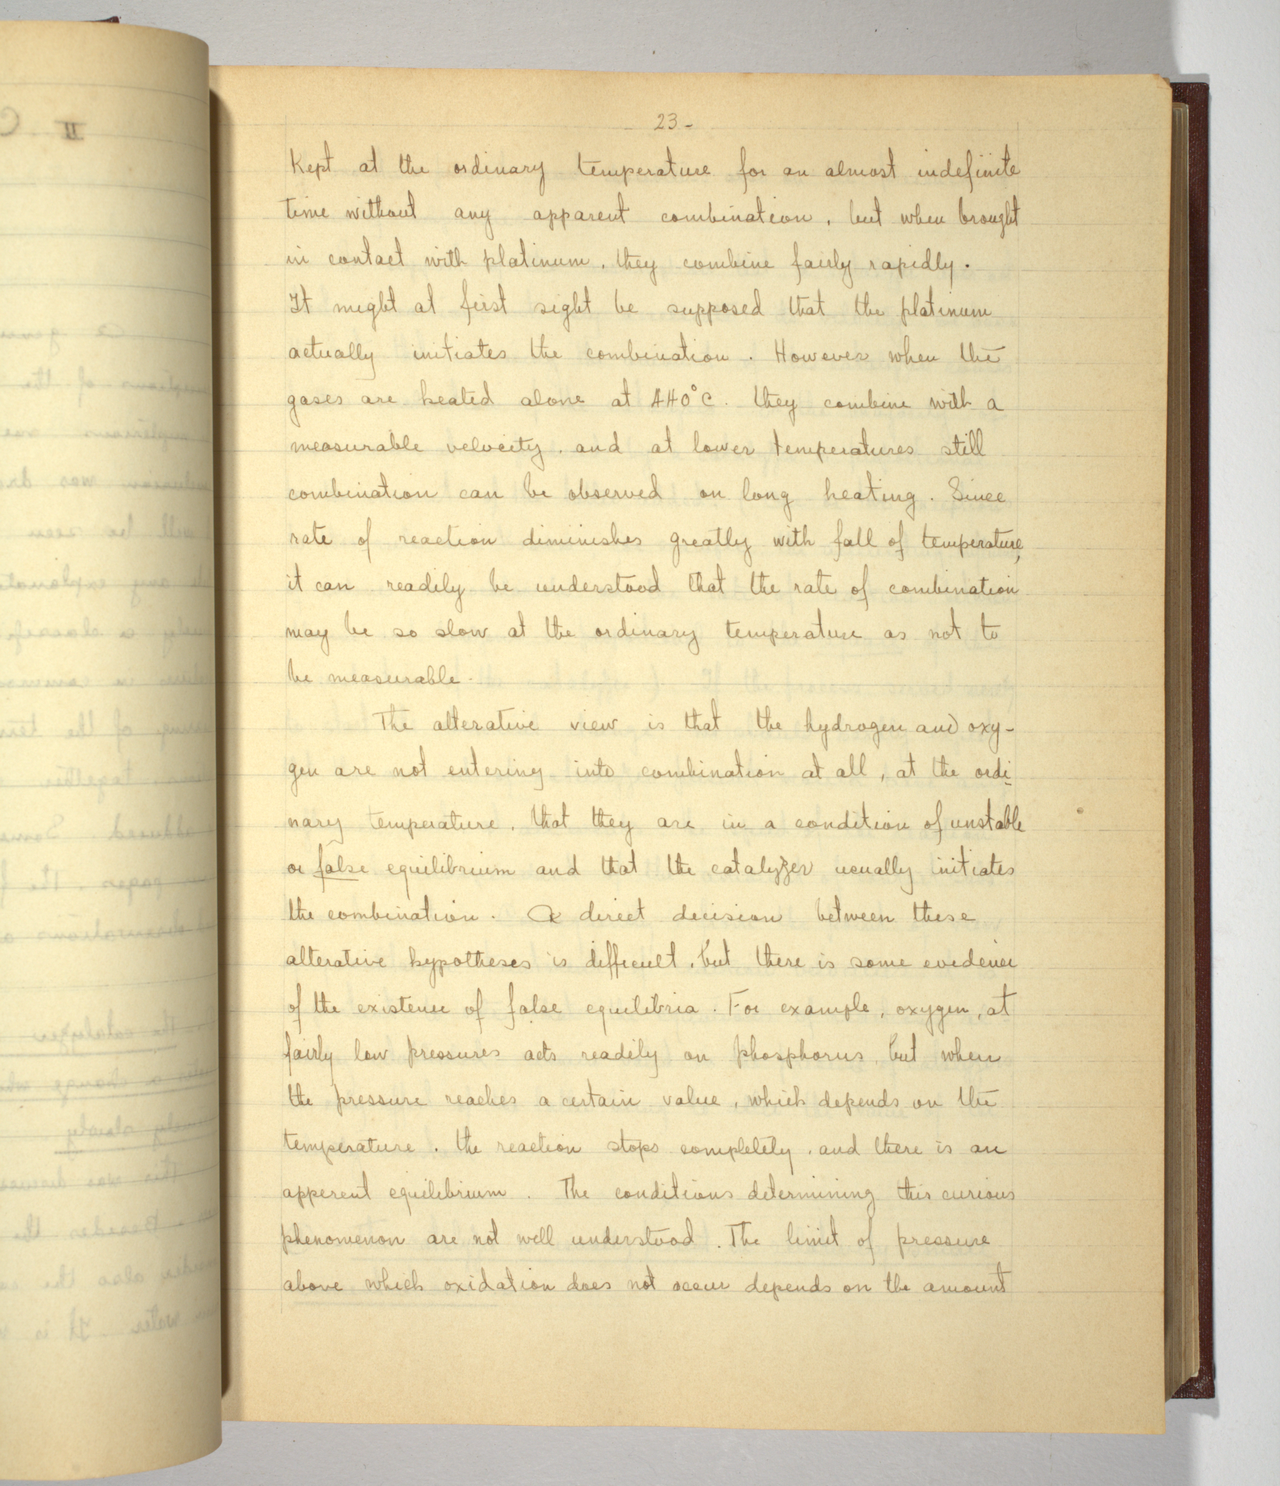 23-
Kept at the ordinary temperature for an almost indefinite
time without any apparent combination, but when brought
in contact with platinum, they combine fairly rapidly.
It might at first sight be supposed that the platinum
actually initiates the combination. However when the
gases are heated alone at 440°C. they combine with a
measurable velocity, and at lower temperatures still
combination can be observed on long heating. Since
rate of reaction diminishes greatly with fall of temperature,
it can readily be understood that the rate of combination
may be so slow at the ordinary temperature as not to
be measurable.
The alterative view is that the hydrogen and oxy-
gen are not entering into combination at all, at the ordi-
nary temperature, that they are in a condition of unstable
or false equilibrium and that the catalyzer usually initiates
the combination. A direct decision between these
alterative hypotheses is difficult, but there is some evidence
of the existence of false equilibria. For example, oxygen, at
fairly low pressures acts readily on phosphorus, but when
the pressure reaches a certain value, which depends on the
temperature, the reaction stops completely, and there is an
apperent equilibrium. The conditions determining this curious
phenomenon are not well understood. The limit of pressure
above which oxidation does not occur depends on the amount